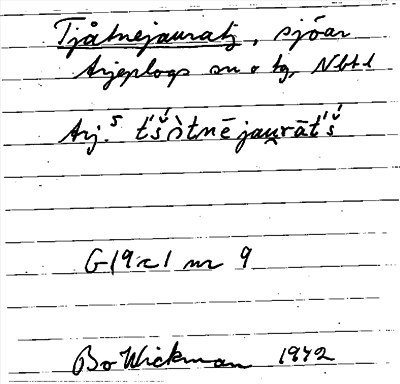 Tjåtnejauratj, sjöar
Arjeplogs sn o tg, Nbtl
Arj.⁵ t́š́ɔ̀tnējau̯rāt́š́
G19c1 nr 9
Bo Wickman 1942